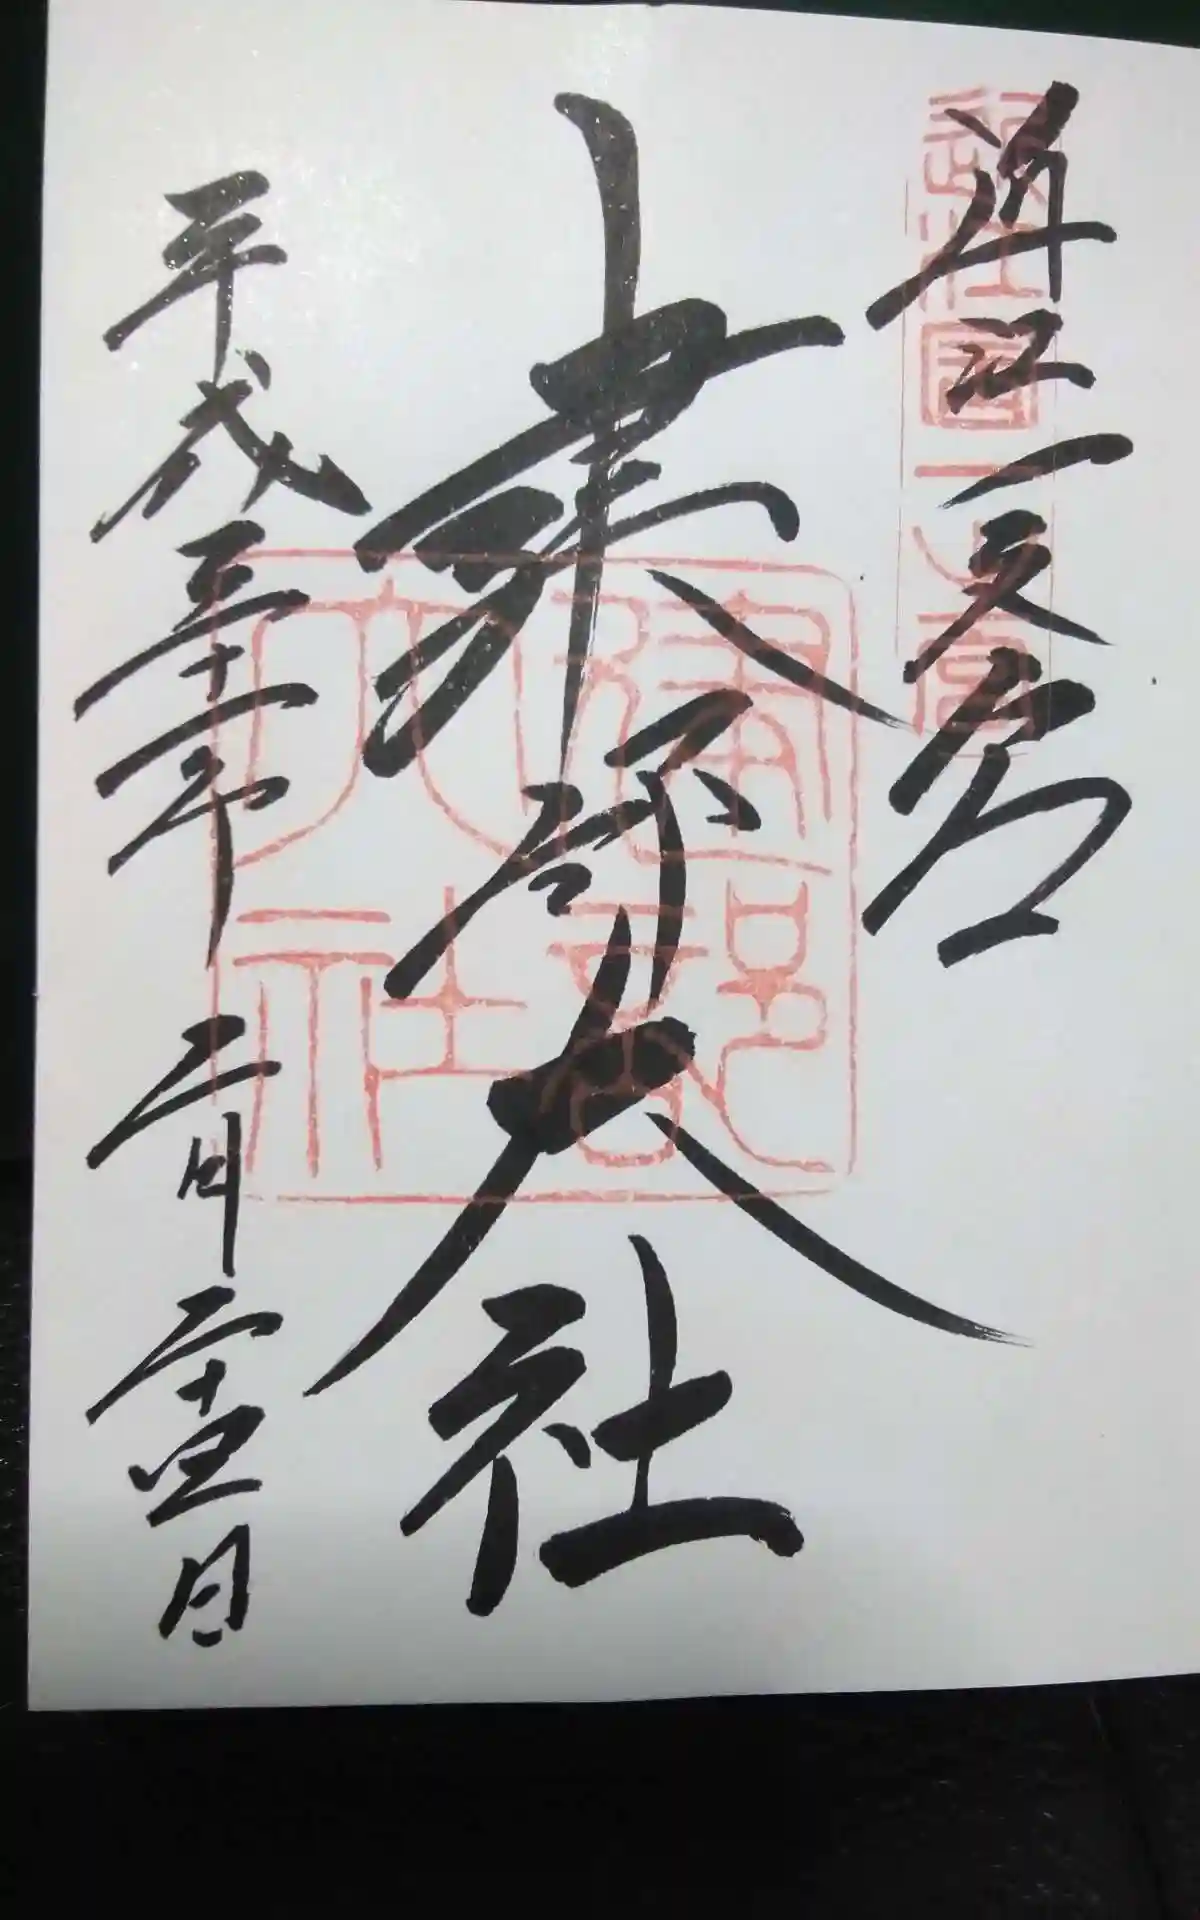 近江一之宮
近江國一之宮
建部大社
建部大社
平成三十一年二月二十四日